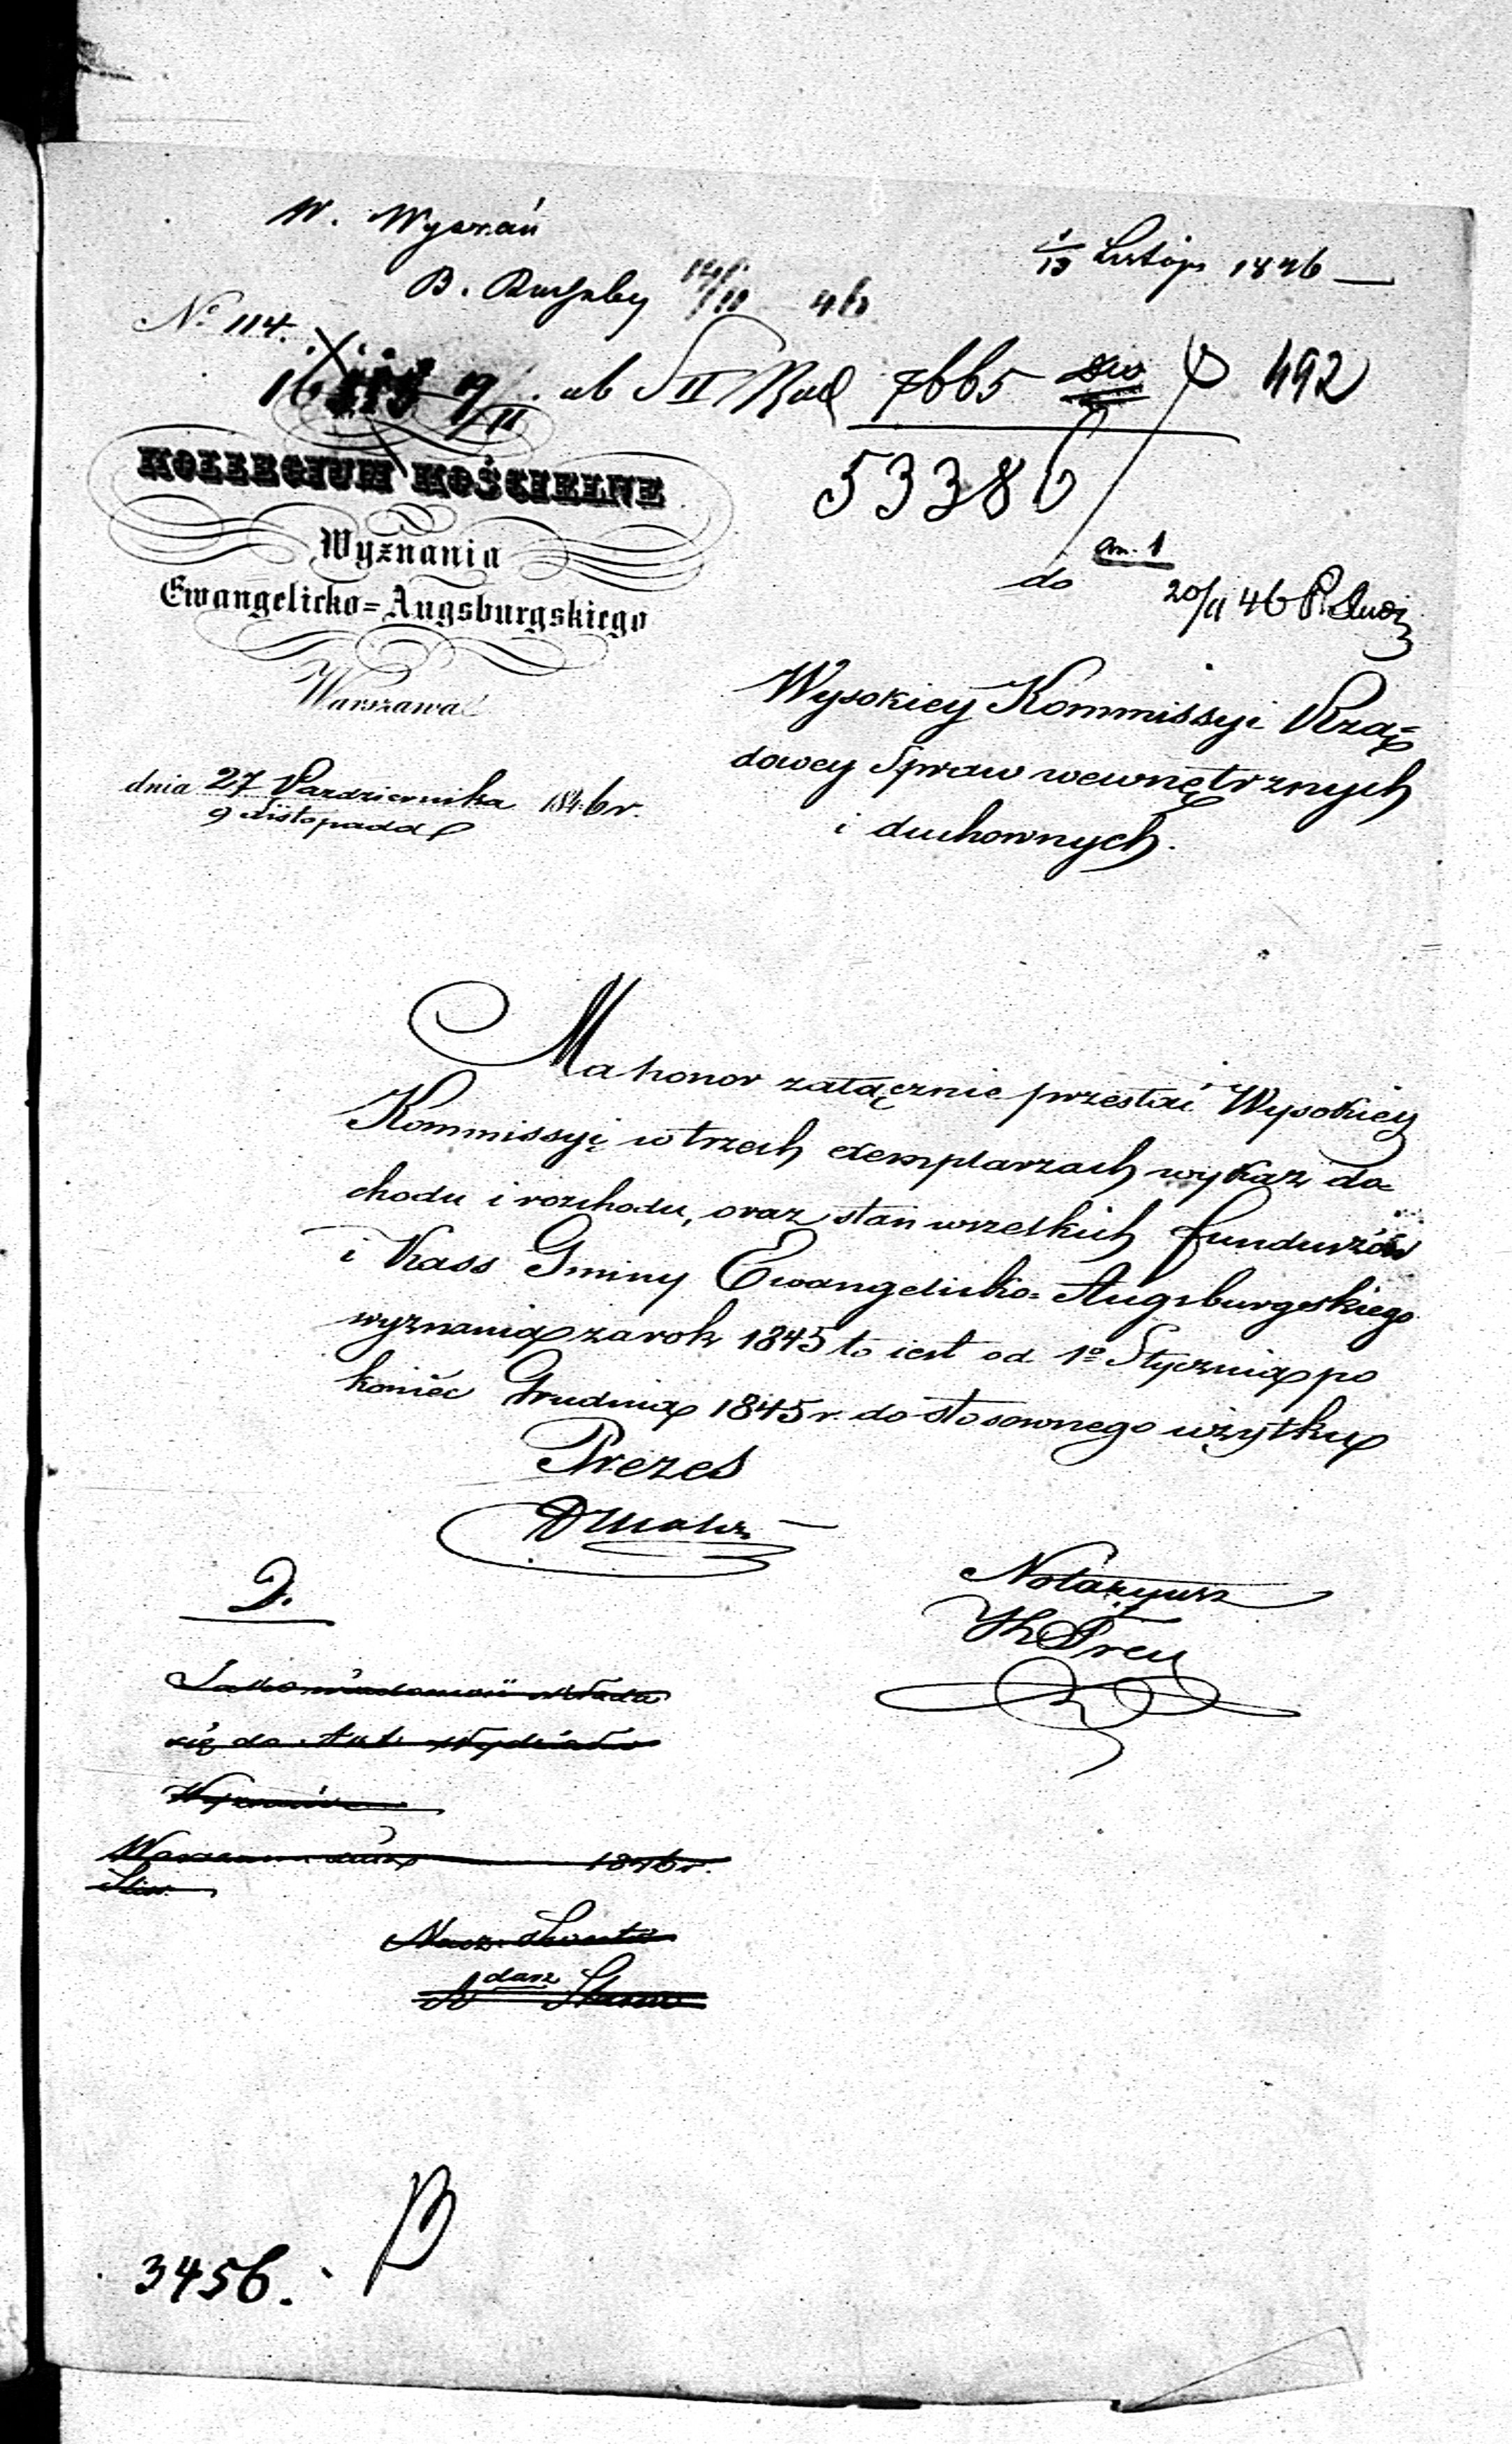 W. Wyznań
1/13 Listop 1846
B. Duchny 46
No 114.
16 9/II. ab S II Rad 7665 492
53386
an. 1
do 20/11 46
KOLLEGIUM KOŚCIELNE
Wyznania
Ewangelicko=Augsburgskiego
Warszawa
dnia 27 Pazdziernika 1846 r.
9 Listopada
Wysokiey Kommissyi Rzą=
dowey Spraw wewnętrznych
i duchownych.
Ma honor załącznie przesłać Wysokiey
Kommissyi w trzech exemplarzach wykaz do=
chodu i rozchodu, oraz stan wszelkich funduszów
i Kass Gminy Ewangelicko=Augsburgskiego
wyznania za rok 1845 to iest od 1o Stycznia po
koniec Grudnia 1845 r. do stosownego użytku
Prezes
Notaryusz
D.
się do Akt Wydziału
Wyznań
Warszawa dnia 1846 r.
3456. B